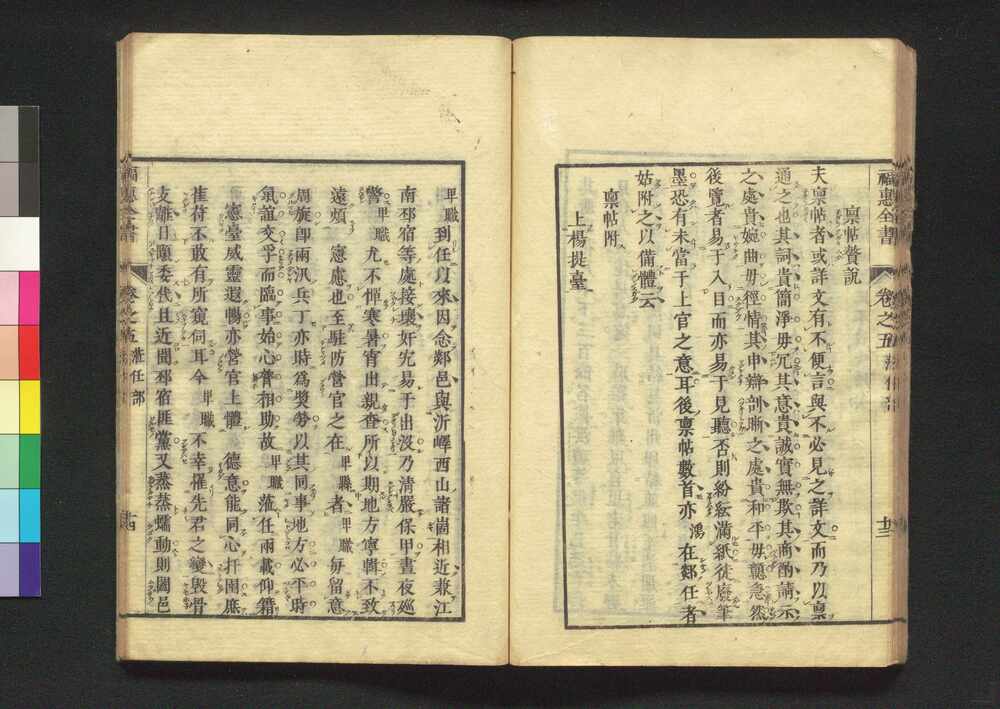 福惠全書
卷之五
稟帖贅說
夫稟帖者或詳文有不便言與不必見之詳文而乃以稟
通之也其詞貴簡淨毋冗其意貴誠實無欺其商酌請示
之處貴婉曲毋徑情其申辯剖晰之處貴和平毋戇急然
後覽者易于入目而亦易于見聽否則紛紜滿紙徒廢筆
墨恐有未當于上官之意耳後稟帖數首亦鴻在郯任者
姑附之以備體云
稟帖附
上楊提臺
卑職到任以來因念郯邑與沂嶧西山諸崮相近兼江
南邳宿等處接壤奸宄易于出沒乃清嚴保甲晝夜廵
警卑職尤不憚寒暑宵出親查所以期地方寧輯不致
遠煩 憲慮也至駐防營官之在卑縣者卑職每留意
周旋卽兩汛兵丁亦時爲奬勞以其同事地方必平時
氣誼交孚而臨事始心膂相助故卑職蒞任兩載仰藉
憲臺威靈遐暢亦營官上體 德意能同心扞圉庶
萑苻不敢有所窺伺耳今卑職不幸罹先君之變毀骨
支離日顒委代且近聞邳宿匪黨又蒸蒸蠕動則圖邑
福惠全書
卷之五
蒞任部